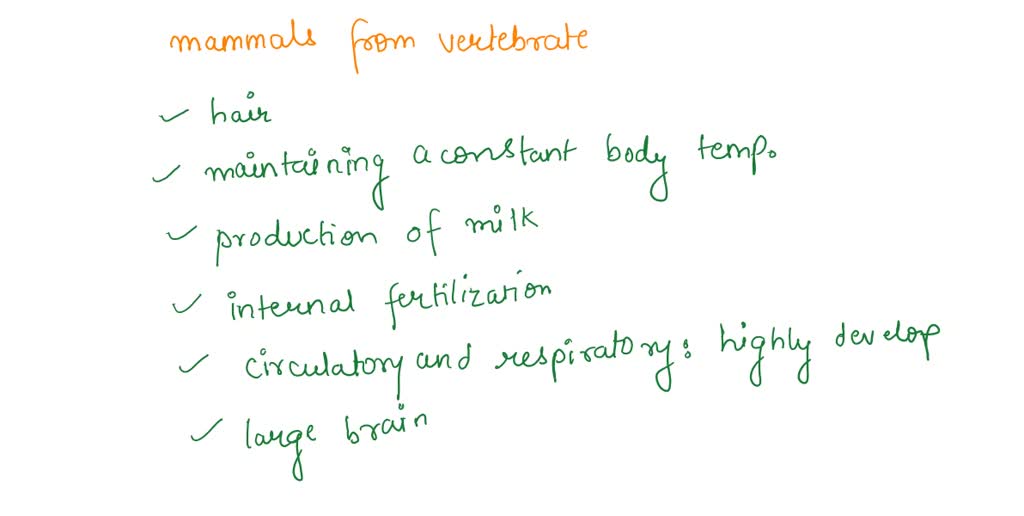 mammals from vertebrate
hair
maintaining a constant body temp.
production of milk
internal fertilization
circulatory and respiratory: highly develop
large brain